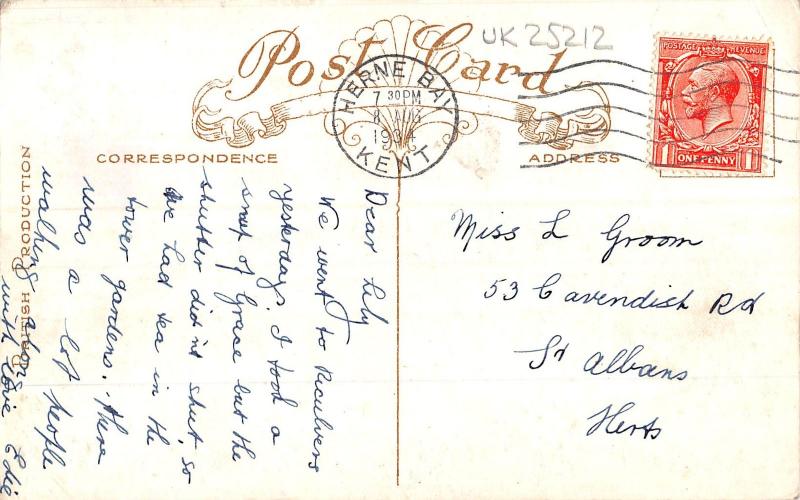 Post Card
UK 25212
HERNE BAY
7 30PM
8 AUG
1934
KENT
POSTAGE REVENUE
1 ONE PENNY 1
CORRESPONDENCE
ADDRESS
BRITISH PRODUCTION
Dear Lily
We went to Reculvers
yesterday. I took a
snap of Grace but the
shutter didn't shut, so
we had tea in the
tower gardens. There
was a lot people
walking along
with love Edie
Miss L Groom
53 Cavendish Rd
St Albans
Herts